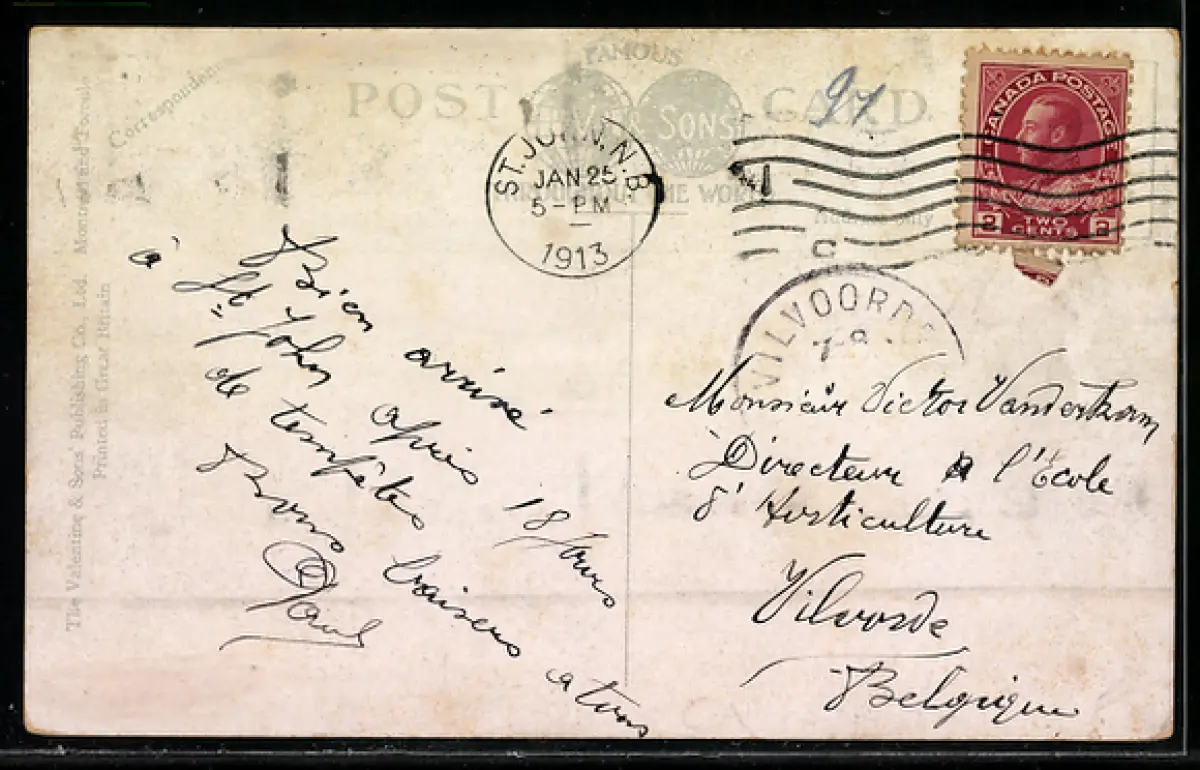 Correspondence
POST CARD
FAMOUS
& SONS
THROUGHOUT THE WORLD
The Valentine & Sons' Publishing Co., Ltd. Montreal and Toronto
Printed in Great Britain
ST. JOHN, N.B.
JAN 25
5-PM
1913
C
CANADA POSTAGE
2 TWO CENTS 2
VILVOORDE
Bien arrivé
à St John après 18 jours
de tempêtes
Bons baisers a tous
Paul
Monsieur Victor
Directeur a l'Ecole
d'Horticulture
Vilvorde
Belgique